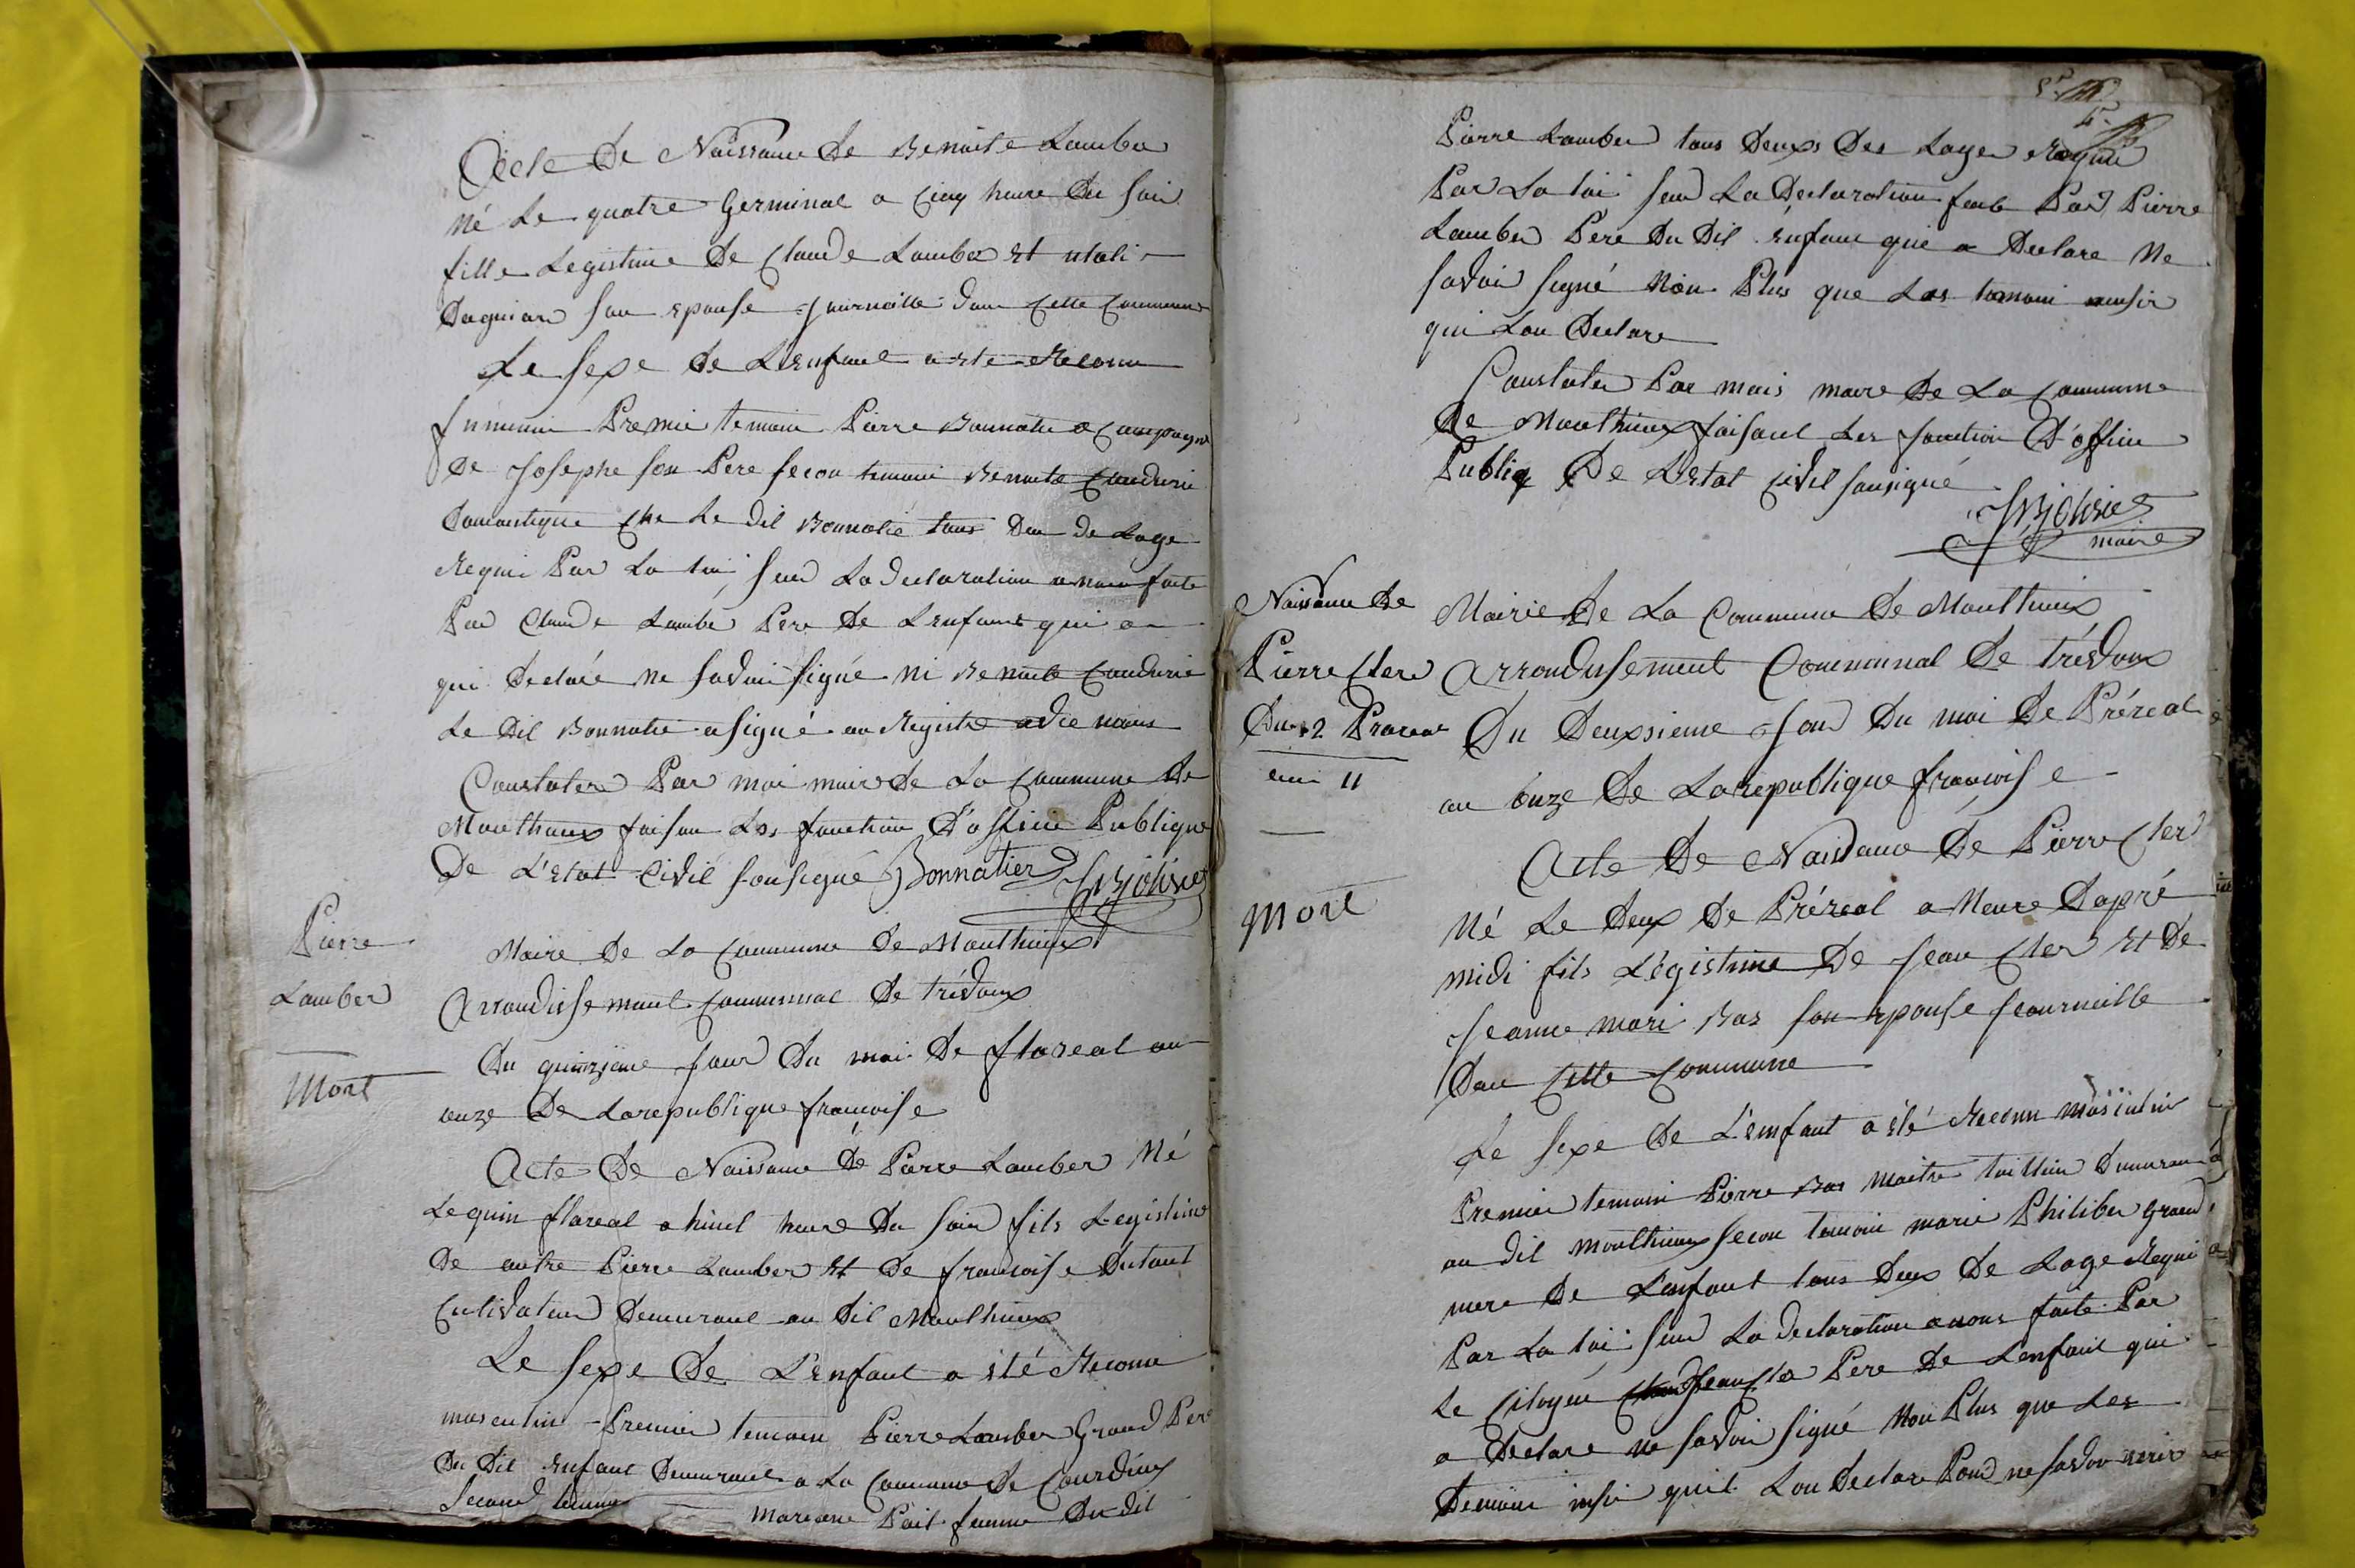 Acte De Naissance De Benoite Lamber
Né Le quatre Germinal a Cinq heure Du soir
fille Legistime De Claude Lamber Et
son epouse Journaille dans Cette Commune
Le sexe De L'enfant a ete Reconu
feminin Premie temoin Pierre Bonnatie
De Josephe son Pere secon temoin Benoite
Domestique Che Le dit Bonnatié tous Deu de Lage
Requi Par La loi sur La declaration a nous faite
Par Claude Lamber Pere De Lenfant qui a
qui declaré ne savoir signé ni Benoite
Le dit Bonnatie a signé au Registre avec nous
Constater Par moi maire de La Commune De
Monthieux faisan Les fonction D'officie Publique
De L'etat Civil sousigné Bonnatier
Pierre
Lamber
Mort
Mairie De La Commune De Monthieux
Arrondissement Communal De trévoux
Du quinzieme jour Du moi De floreal an
onze De La republique francoise
Acte De Naissance De Pierre Lamber Né
Le quin floreal a huit heure Du soir fils Legistime
De autre Pierre Lamber Et De francoise Dutant
Cultivateur Demurant au dit Monthieux
Le sexe De L'enfant a été Reconu
masculin Premier temoin Pierre Lamber Grand Pere
Du dit enfant Demurant a La Commune De
Second temoin mariane Pait femme Du dit
Pierre Lamber tous Deux Des Lage Requie
Par La loi sur La Declaration faite Par Pierre
Lamber Pere Du Dit enfant qui a Declare Ne
savoir signé Non Plus que Les temoin
qui Lon Declare
Constater Par mois maire De La Commune
De Monthieux faisant Les fonction D'officie
Publiq De L'etat Civil sousigné
maire
Naissance De
Pierre Cler
Du 2 Prereal
an 11
Mort
Mairie De La Commune De Monthieux
Arrondissement Communal De trévoux
Du Deuxsieme Jour Du moi De Préreal
an onze De La republique francoise
Acte De Naissance De Pierre Cler
Né Le Deux De Préreal a Neure Dapré
midi fils Légistime De Jean Cler Et De
Jeanne mari Bas son epouse Journaille
Dan Cette Commune
Le sexe De L'enfant a été Reconu masculin
Premier temoin Pierre Bas Maitre Demurant
au dit Monthieux secon temoin marie Philiber Grand
mere De L'enfant tous Deux De Lage Requi
Par La loi sur La declaration a nous faite Par
Le Citoyen Jean Cler Pere De Lenfant qui
a Declare ne savoir signé Non Plus que Les
temoin qui Lon Declare Pour ne savoir